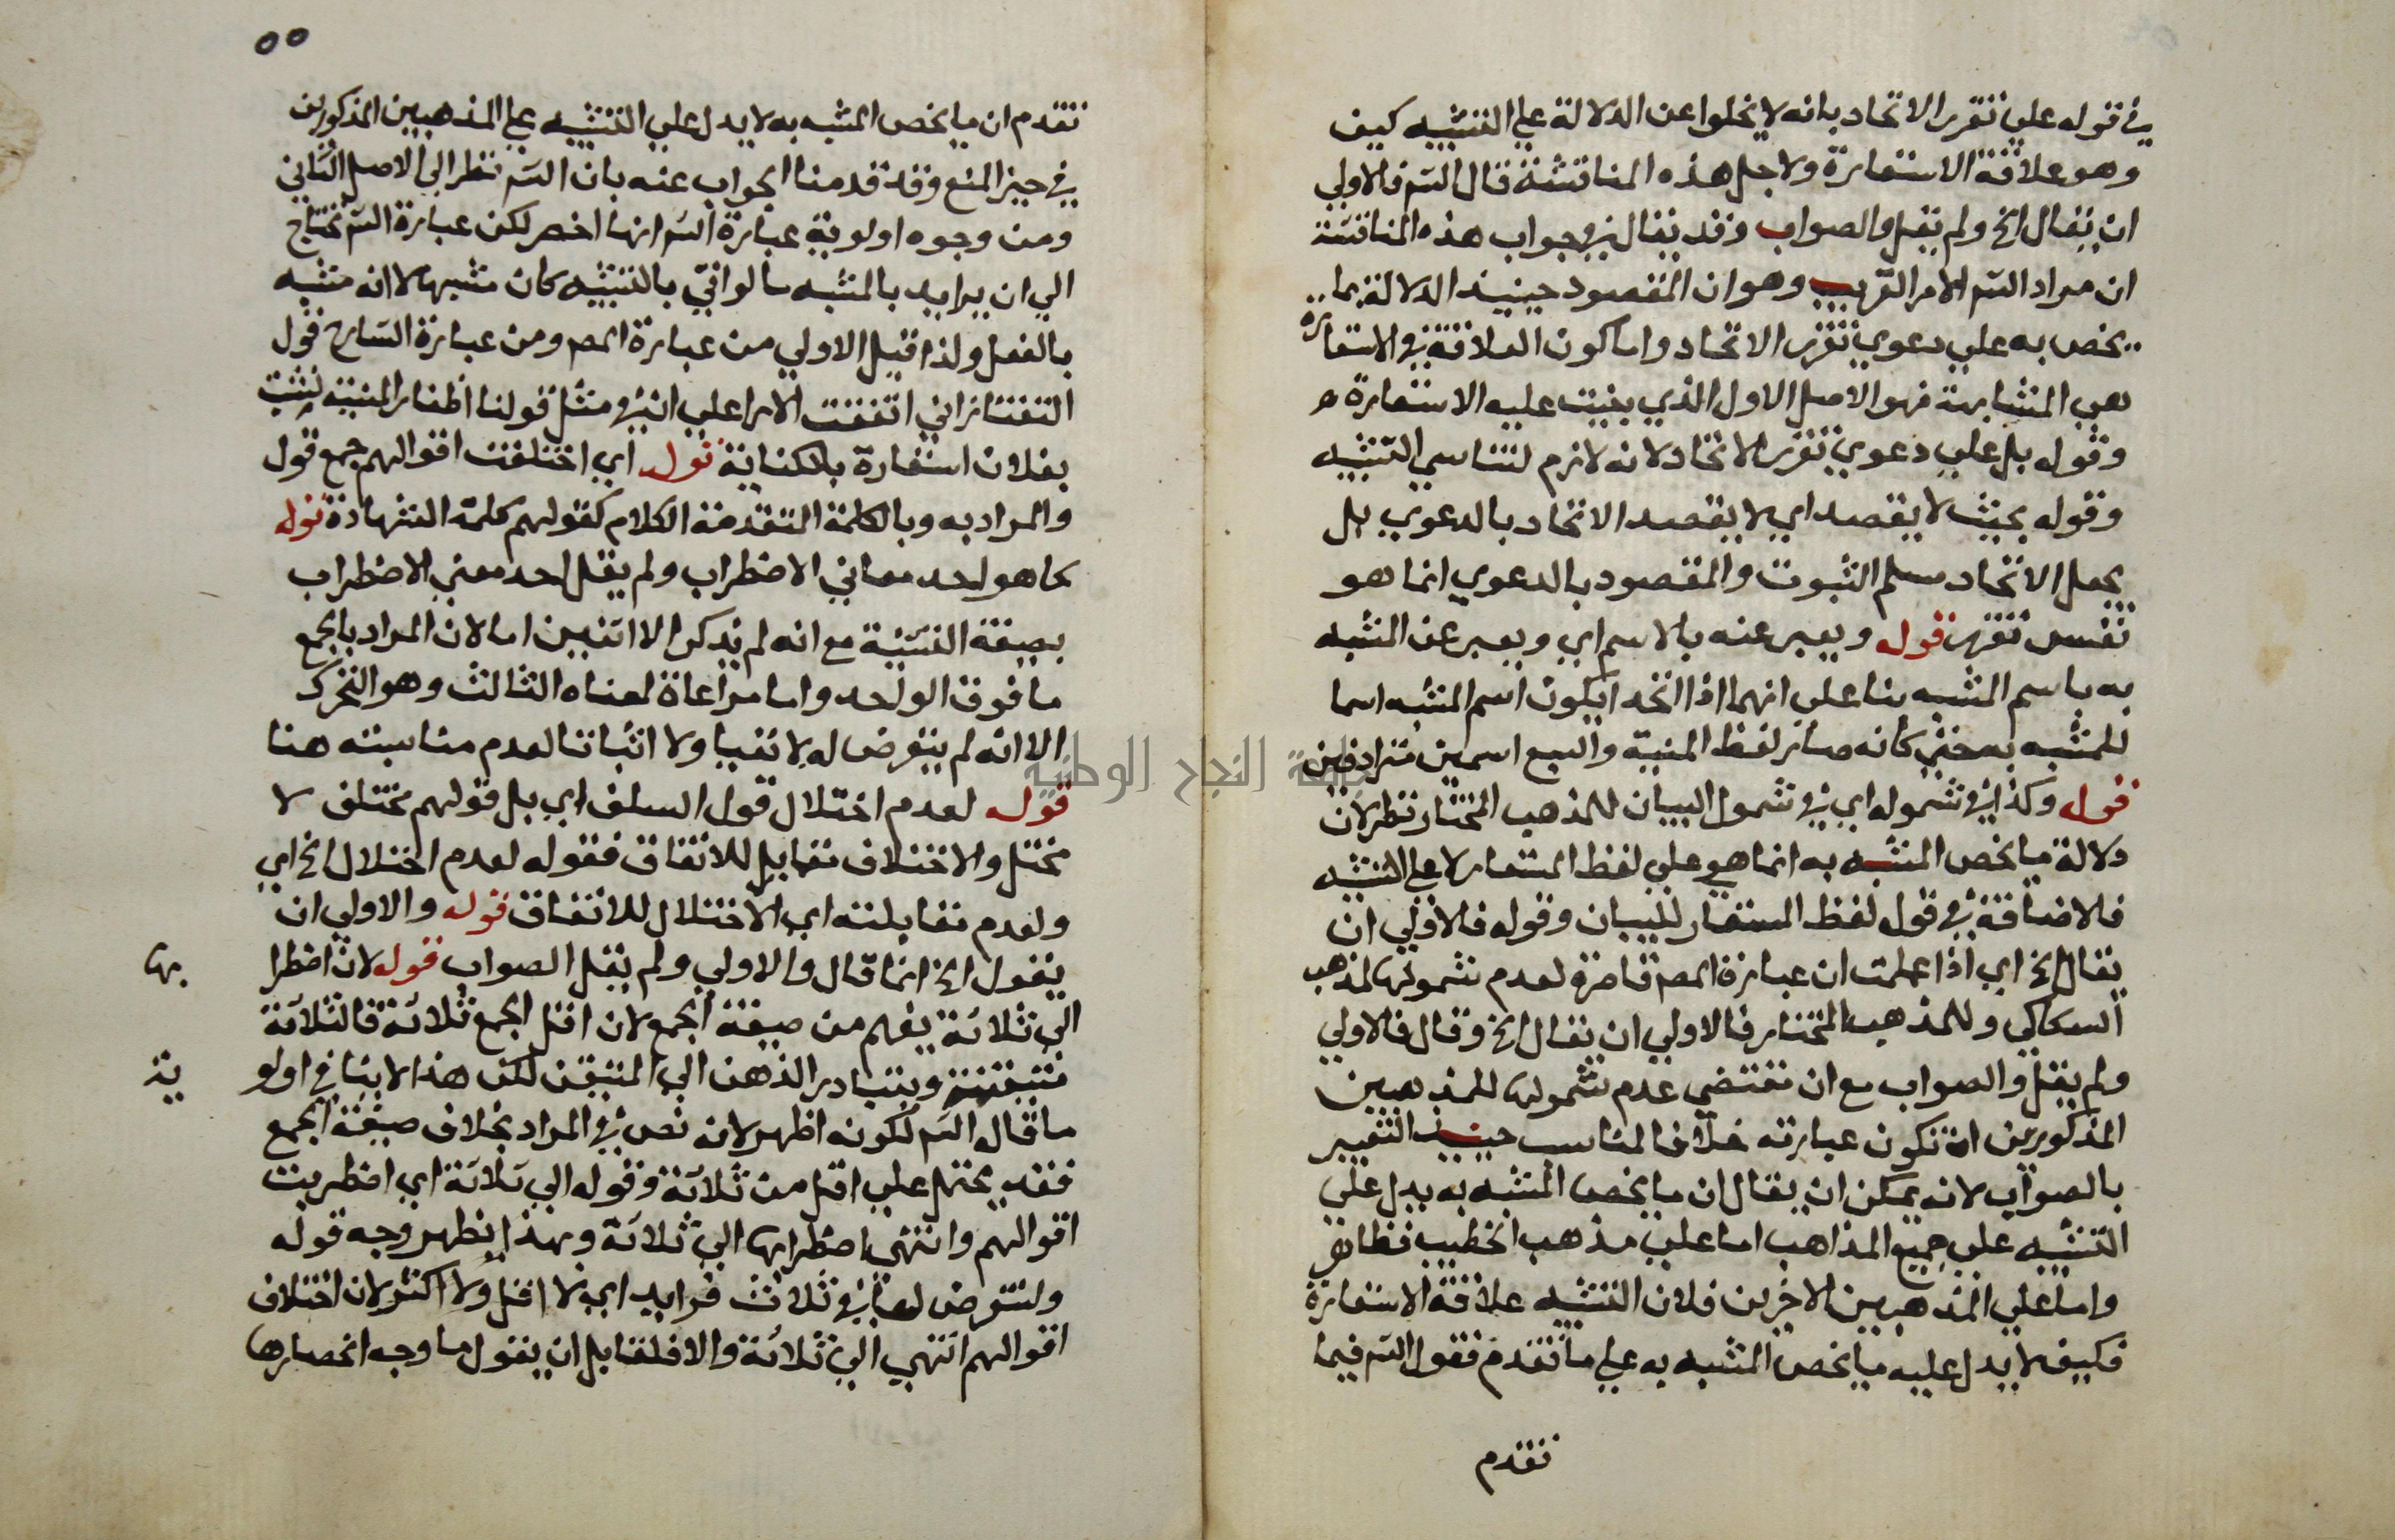 في قوله علي تقرير الاتحاد بانه لا يخلوا عن الدلالة علي التشبيه كيف
وهو علاقة الاستعارة ولاجل هذه المناقشة قال الشم فالاولي
ان يقال الخ ولم يقل والصواب وقد يقال في جواب هذه المناقشة
ان مراد الشم الامر القريب وهو ان المقصود حينيذ الدلالة بما
يخص به علي دعوي تقرير الاتحاد واما كون العلاقة في الاستعارة
هي المشابهة فهو الاصل الاول الذي بنيت عليه الاستعارة
وقوله بل علي دعوي تقرير الاتحاد لانه لازم لتناسي التشبيه
وقوله بحيث لا يقصد اي لا يقصد الاتحاد بالدعوي بل
يجعل الاتحاد مسلم الثبوت والمقصود بالدعوي انما هو
نفس تقرير قوله ويعبر عنه بالاسم اي ويعبر عن المشبه
به باسم المشبه بنا علي انهما اذا اتحدا يكون اسم المشبه اسما
للمشبه به حتي كانه صار لفظ المنية والسبع اسمين مترادفين
قوله وكذا في شموله اي في شمول البيان للمذهب المختار نظر لان
دلالة ما يخص المشبه به انما هي علي لفظ المستعار لا علي التشبيه
فالاضافة في قول لفظ المستعار للبيان وقوله فالاولي ان
يقال الخ اي اذا علمت ان عبارة المصم قاصرة لعدم شمولها لمذهب
السكاكي وللمذهب المختار فالاولي ان يقال الخ وقال فالاولي
ولم يقل والصواب مع ان مقتضي عدم شمولها للمذهبين
المذكورين ان تكون عبارته خلافا لمناسب حينيذ التعبير
بالصواب لانه يمكن ان يقال ان ما يخص المشبه به يدل علي
التشبيه علي جميع المذاهب اما علي مذهب الخطيب فظاهر
واما علي المذهبين الاخرين فلان التشبيه علاقة الاستعارة
فكيف لا يدل عليه ما يخص المشبه به علي ما تقدم فقول الشم فيما
تقدم
٥٥
تقدم ان ما يخص المشبه به لا يدل علي التشبيه علي المذهبين المذكورين
في حيز المنع وقد قدمنا الجواب عنه بان الشم نظر الي الاصل الثاني
ومن وجوه اولوية عبارة الشم انها اخصر لكن عبارة الشم تحتاج
الي ان يراد بالمشبه ما لو اتي بالتشبيه كان مشبها لا انه مشبه
بالفعل ولذا قيل الاولي من عبارة المصم ومن عبارة الشارح قول
التفتازاني اتفقت الارا علي ان في مثل قولنا اظفار المنية نشبت
بفلان استعارة بالكناية قوله اي اختلفت اقوالهم جمع قول
والمراد به وبالكلمة المتقدمة الكلام كقولهم كلمة الشهادة قوله
كما هو احد معاني الاضطراب ولم يقل احد معني الاضطراب
بصيغة التثنية مع انه لم يذكر الا اثنين اما لان المراد بالجمع
ما فوق الواحد واما مراعاة لمعناه الثالث وهو التحرك
الا انه لم يتعرض له لا نفيا ولا اثباتا لعدم مناسبته هنا
قوله لعدم اختلال قول السلف اي بل قولهم مختلف لا
مختل والاختلاف مقابل للاتفاق فقوله لعدم اختلال الخ اي
ولعدم مقابلته اي الاختلال للاتفاق قوله والاولي ان
يقول الخ انما قال والاولي ولم يقل الصواب قوله لان اضطرا
بها
الي ثلاثة يفهم من صيغة الجمع لان اقل الجمع ثلاثة فالثلاثة
متيقنة ويتبادر الذهن الي المتيقن لكن هذا لا ينافي اولو
ية
ما قال الشم لكونه اظهر لانه نص في المراد بخلاف صيغة الجمع
فقد يحمل علي اقل من ثلاثة وقوله الي ثلاثة اي اضطربت
اقوالهم وانتهي اضطرابها الي ثلاثة وبهذا يظهر وجه قوله
ولنتعرض لها في ثلاث فرايد اي لا اقل ولا اكثر لان اختلاف
اقوالهم انتهي الي ثلاثة والا فلقايل ان يقول ما وجه انحصارها